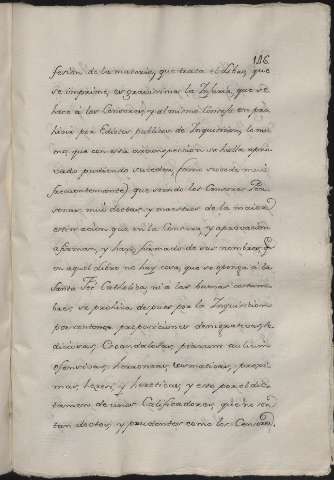 186
fesion de la materia, que trata el Libro, que
se imprime, es gravissima la Injuria, que se
hace à los Censores, y al mismo Consejo en pro-
hivir por Edictos publicos de Inquisicion, lo mis-
mo, que con esta circunspeccion se halla apro-
vado pudiendo suceder, (como sucede mui
frecuentemente) que siendo los Censores Per-
sonas mui doctas, y maestros de la maior
estimacion que en la Censura, y aprovacion
afirman, y haze firmado de sus nombres q.e
en aquel Libro no hay cosa, que se oponga à la
Santa Feé Catholica, ni à las buenas costum-
bres, se prohiva despues por la Inquisicion
por contener proposiciones denigrativas, se-
diciosas, Escandalosas, piarum aurium
ofensivas, herroneas, temerarias, proxi-
mas, heresi, y hereticas, y esto por el dic-
tamen de unos Calificadores, que no son
tan doctos, y prudentes como los Censores.